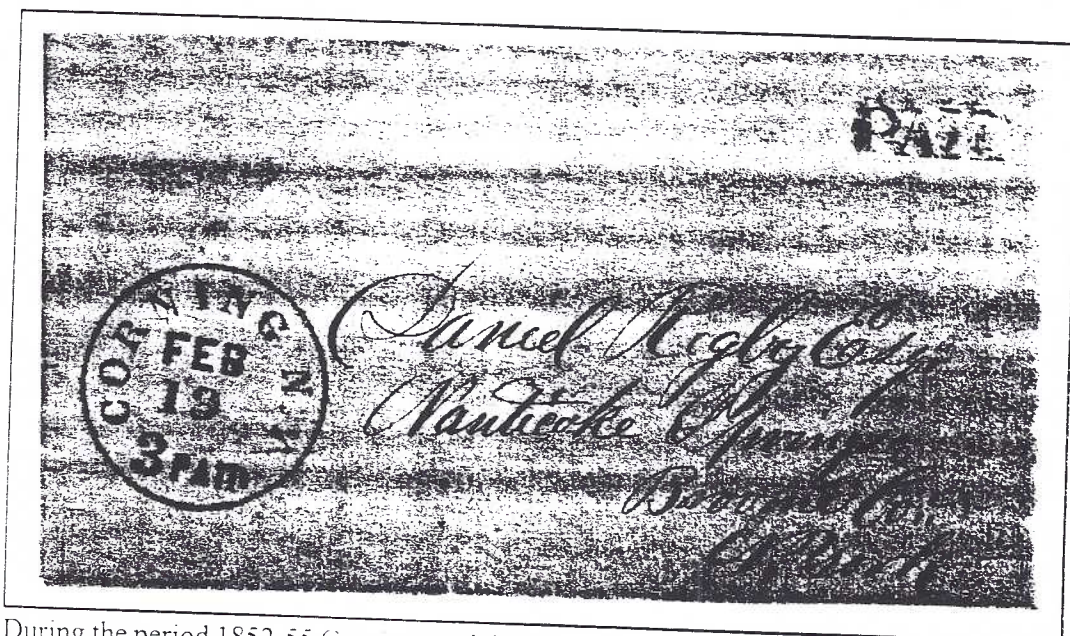 PAID
CORNING N.Y.
FEB
19
3 PAID
Daniel Rigby Esq
Nanticoke Springs
Co.
During the period 1852-55